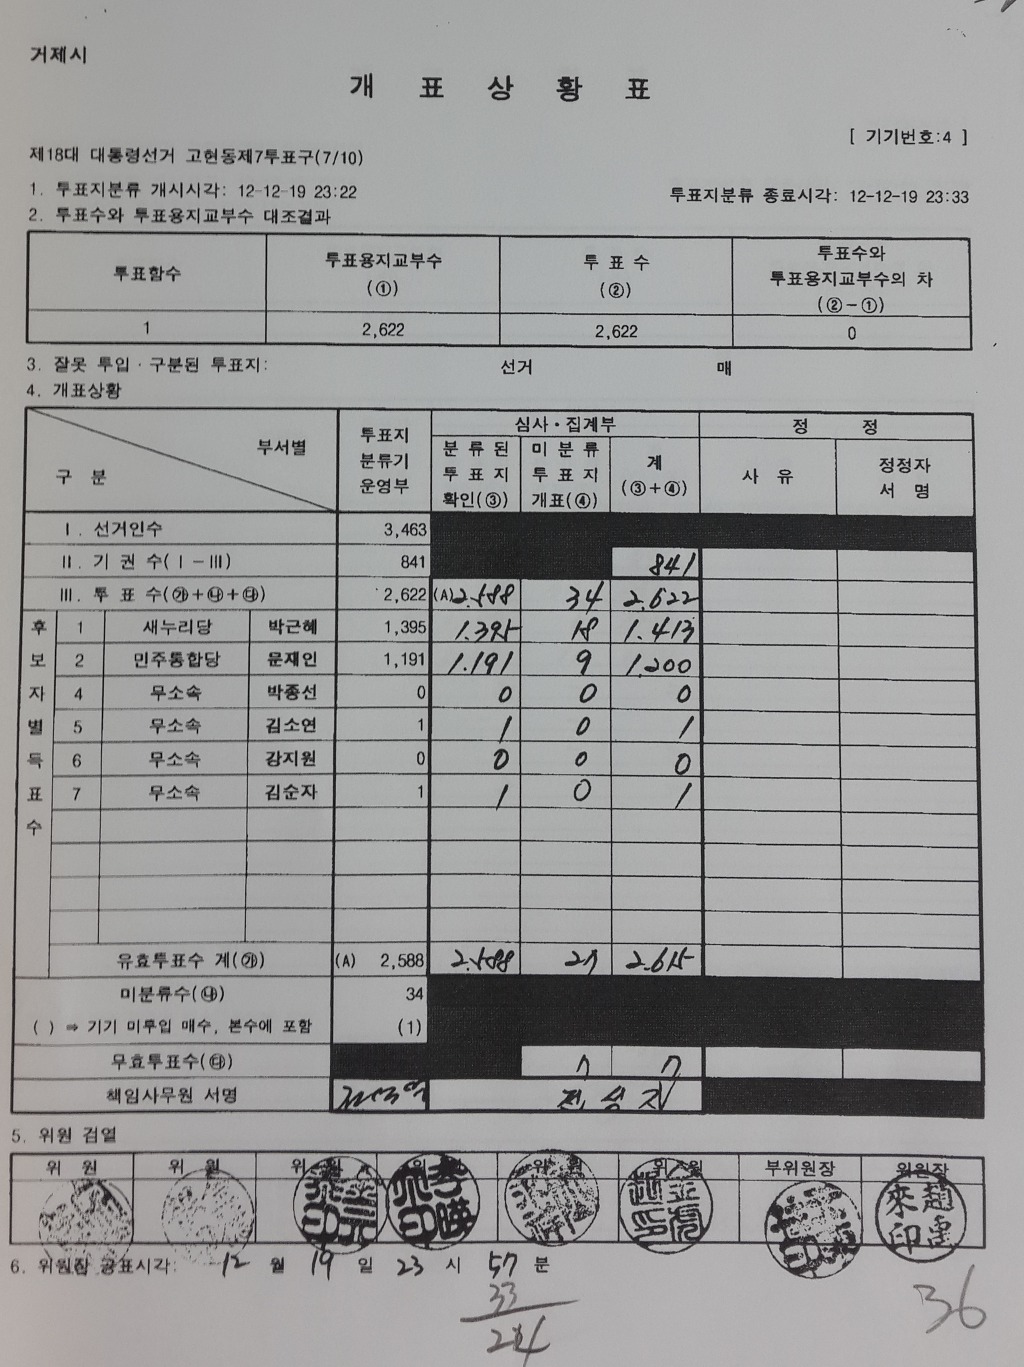 거제시
개 표 상 황 표
[ 기기번호:4 ]
제18대 대통령선거 고현동제7투표구(7/10)
1. 투표지분류 개시시각: 12-12-19 23:22 투표지분류 종료시각: 12-12-19 23:33
2. 투표수와 투표용지교부수 대조결과
투표함수 투표용지교부수 (①) 투 표 수 (②) 투표수와 투표용지교부수의 차 (②-①)
1 2,622 2,622 0
3. 잘못 투입·구분된 투표지: 선거 매
4. 개표상황
구 분 부서별 투표지 분류기 운영부 심사·집계부 정 정
분 류 된 투 표 지 확인(③) 미 분 류 투 표 지 개표(④) 계 (③+④) 사 유 정정자 서 명
Ⅰ. 선거인수 3,463
Ⅱ. 기 권 수(Ⅰ-Ⅲ) 841 841
Ⅲ. 투 표 수(㉮+㉯+㉰) 2,622 (A) 2.588 34 2.622
후보자별득표수
1 새누리당 박근혜 1,395 1.395 18 1.413
2 민주통합당 문재인 1,191 1.191 9 1.200
4 무소속 박종선 0 0 0 0
5 무소속 김소연 1 1 0 1
6 무소속 강지원 0 0 0 0
7 무소속 김순자 1 1 0 1
유효투표수 계(㉮) (A) 2,588 2.588 27 2.615
미분류수(㉯) 34
( ) ⇒ 기기 미투입 매수, 본수에 포함 (1)
무효투표수(㉰) 7 7
책임사무원 서명
5. 위원 검열
위 원 위 원 위 원 위 원 위 원 위 원 부위원장 위원장
6. 위원장 공표시각: 12 월 19 일 23 시 57 분
33
24
36